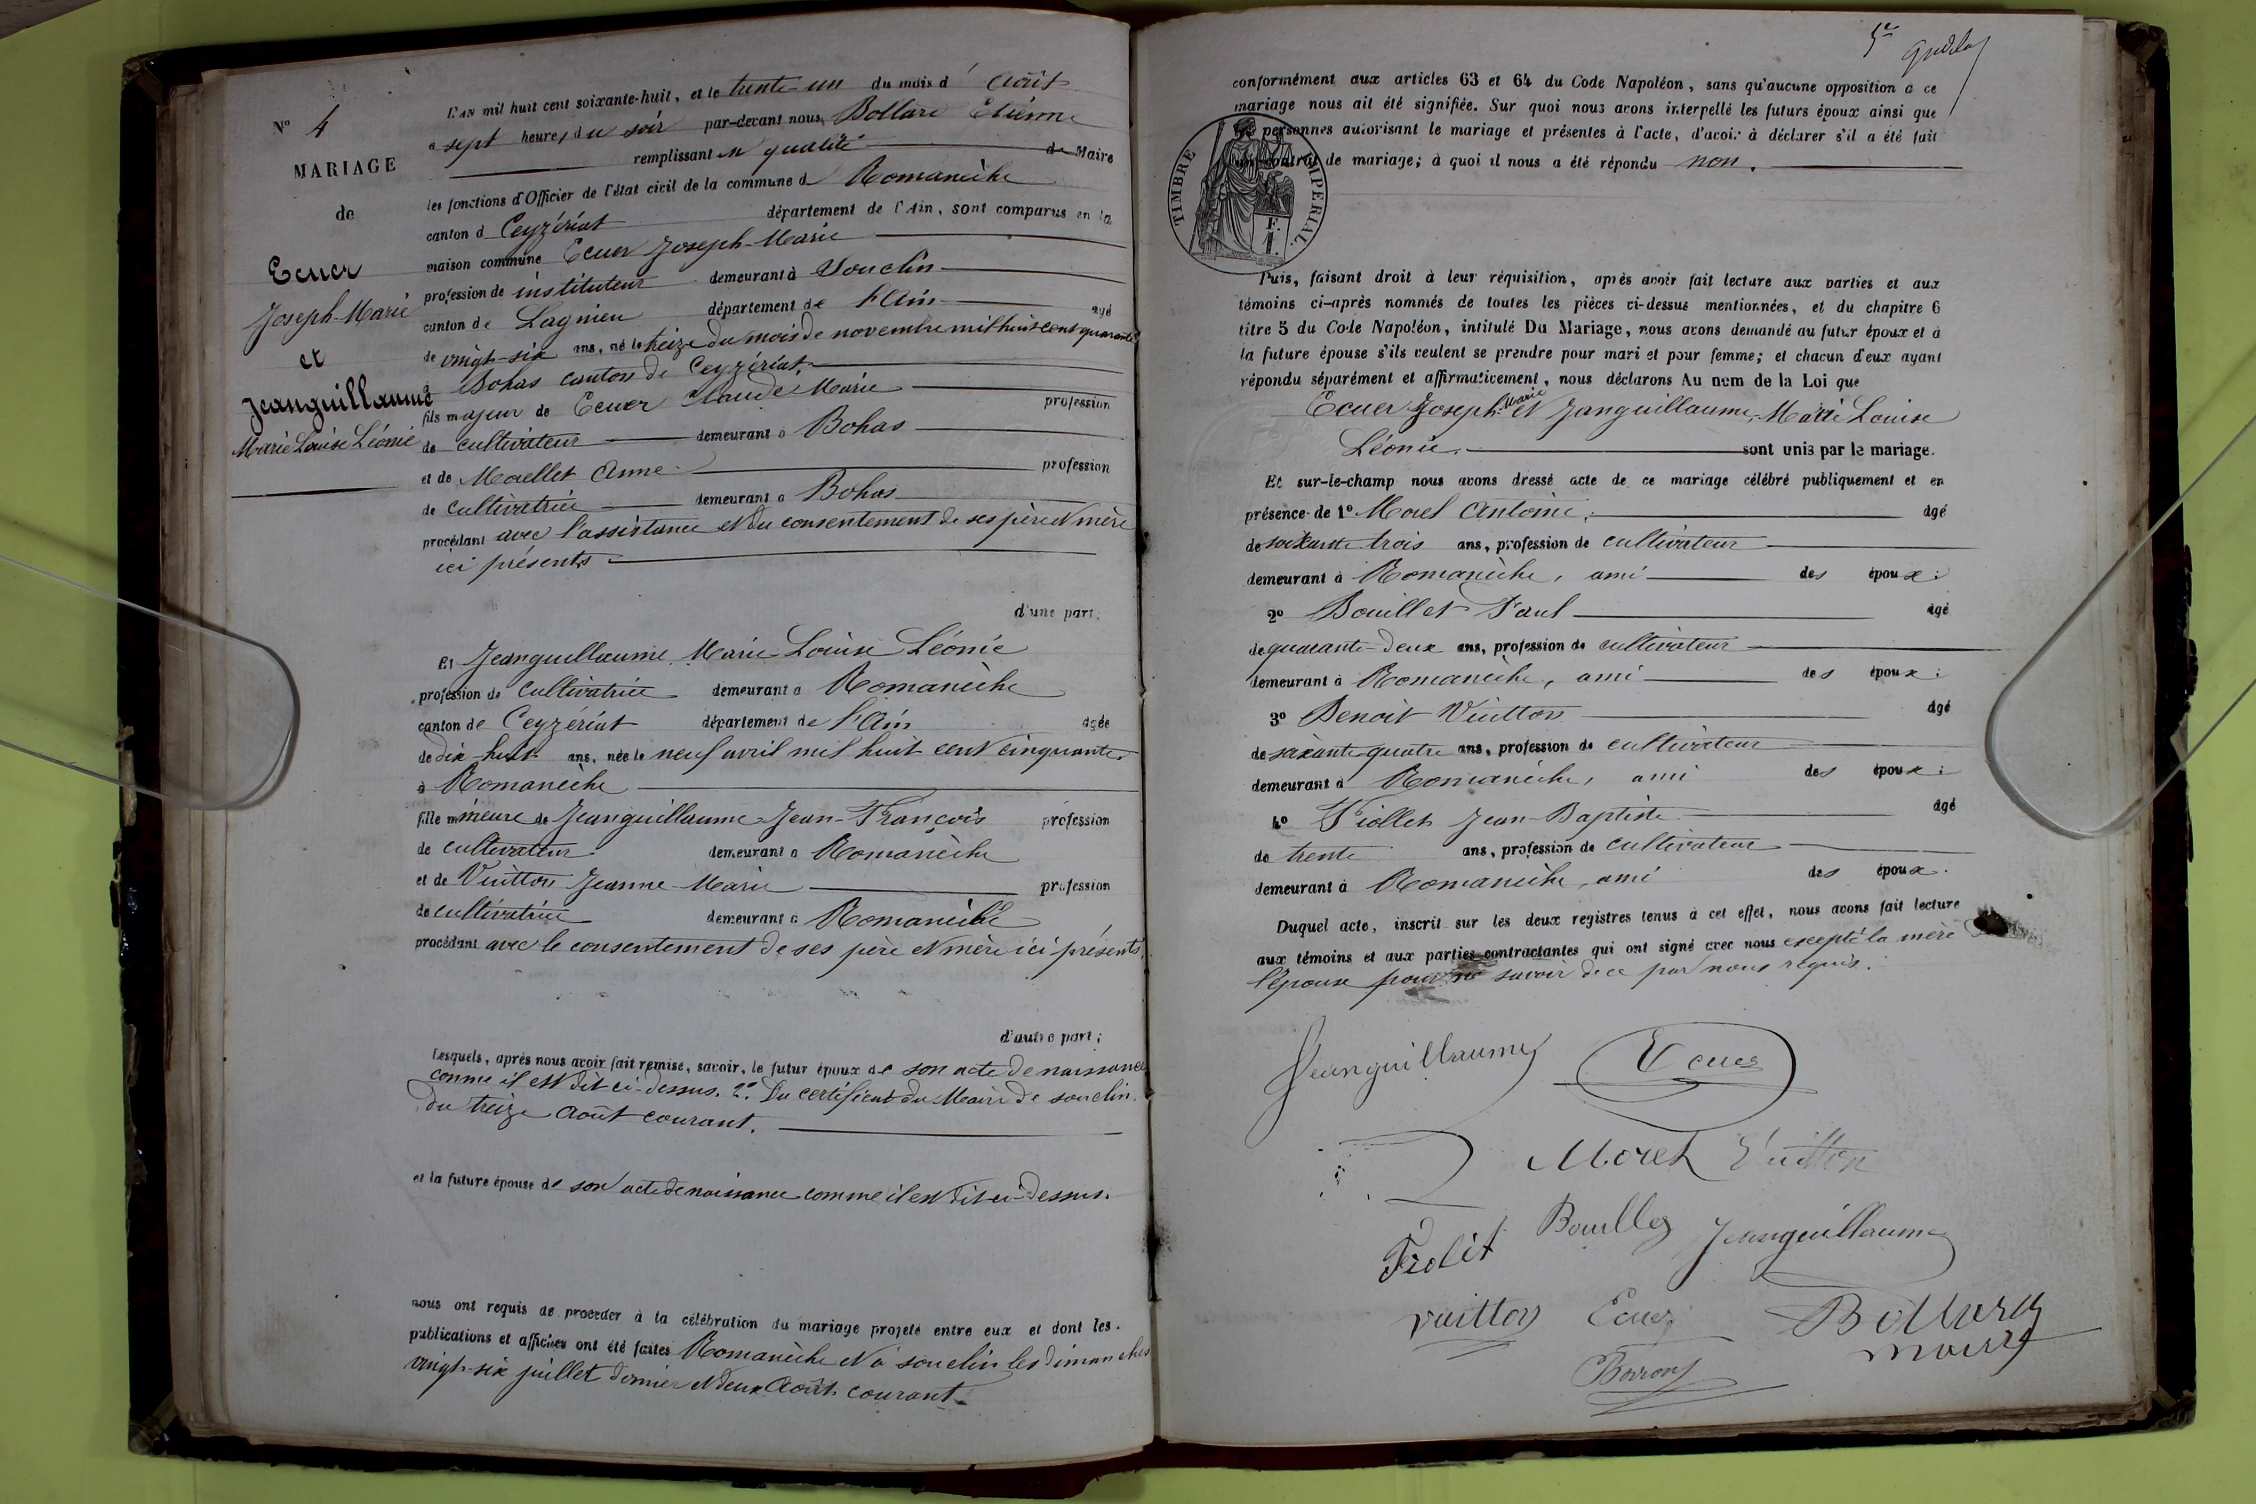 N° 4
MARIAGE
de
Ecuer
Joseph-Marie
et
Jeanguillaume
Marie Louise Léonie
L'AN mil huit cent soixante-huit, et le trente-un du mois d'août
à sept heures du soir par-devant nous, Bollare Etienne
remplissant en qualité de Maire
les fonctions d'Officier de l'état civil de la commune de Romanèche
canton de Ceyzériat département de l'Ain, sont comparus en la
maison commune Ecuer Joseph-Marie
profession de instituteur demeurant à Souclin
canton de Lagnieu département de l'Ain âgé
de vingt-six ans, né le treize du mois de novembre mil huit cent quarante
à Bohas canton de Ceyzériat,
fils majeur de Ecuer Claude Marie profession
de cultivateur demeurant à Bohas
et de Morellet Anne profession
de cultivatrice demeurant à Bohas
procédant avec l'assistance et du consentement de ses père et mère
ici présents
d'une part;
Et Jeanguillaume Marie Louise Léonie
profession de cultivatrice demeurant à Romanèche
canton de Ceyzériat département de l'Ain âgée
de dix-huit ans, née le neuf avril mil huit cent cinquante
à Romanèche
fille mineure de Jeanguillaume Jean-François profession
de cultivateur demeurant à Romanèche
et de Vuitton Jeanne-Marie profession
de cultivatrice demeurant à Romanèche
procédant avec le consentement de ses père et mère ici présents
d'autre part;
Lesquels, après nous avoir fait remise, savoir, le futur époux de son acte de naissance
comme il est dit ci-dessus. 2° Du certificat du Maire de souclin
du treize août courant.
et la future épouse de son acte de naissance comme il est dit ci-dessus.
nous ont requis de procéder à la célébration du mariage projeté entre eux et dont les
publications et affiches ont été faites Romanèche et à souclin les dimanches
vingt-six juillet dernier et deux Août courant
conformément aux articles 63 et 64 du Code Napoléon, sans qu'aucune opposition à ce
mariage nous ait été signifiée. Sur quoi nous avons interpellé les futurs époux ainsi que
personnes autorisant le mariage et présentes à l'acte, d'avoir à déclarer s'il a été fait
contrat de mariage; à quoi il nous a été répondu non.
TIMBRE IMPÉRIAL.
F.
1.
Puis, faisant droit à leur réquisition, après avoir fait lecture aux parties et aux
témoins ci-après nommés de toutes les pièces ci-dessus mentionnées, et du chapitre 6
titre 5 du Code Napoléon, intitulé Du Mariage, nous avons demandé au futur époux et à
la future épouse s'ils veulent se prendre pour mari et pour femme; et chacun d'eux ayant
répondu séparément et affirmativement, nous déclarons Au nom de la Loi que
Ecuer Joseph-Marie et Janguillaume, Marie Louise
Léonie. sont unis par le mariage.
Et sur-le-champ nous avons dressé acte de ce mariage célébré publiquement et en
présence de 1° Morel Antoine, âgé
de soixante trois ans, profession de cultivateur
demeurant à Romanèche, ami des époux;
2° Bouillet Paul âgé
de quarante-deux ans, profession de cultivateur
demeurant à Romanèche, ami des époux;
3° Benoit Vuitton âgé
de soixante-quatre ans, profession de cultivateur
demeurant à Romanèche, ami des époux;
4° Fiollet Jean-Baptiste âgé
de trente ans, profession de cultivateur
demeurant à Romanèche, ami des époux.
Duquel acte, inscrit sur les deux registres tenus à cet effet, nous avons fait lecture
aux témoins et aux parties contractantes qui ont signé avec nous excepté la mère
l'épouse pour ne savoir de ce par nous requis.
Jeanguillaume Ecuer
Morel Vuitton
Bouillet Jeanguillaume
Vuitton Ecuer